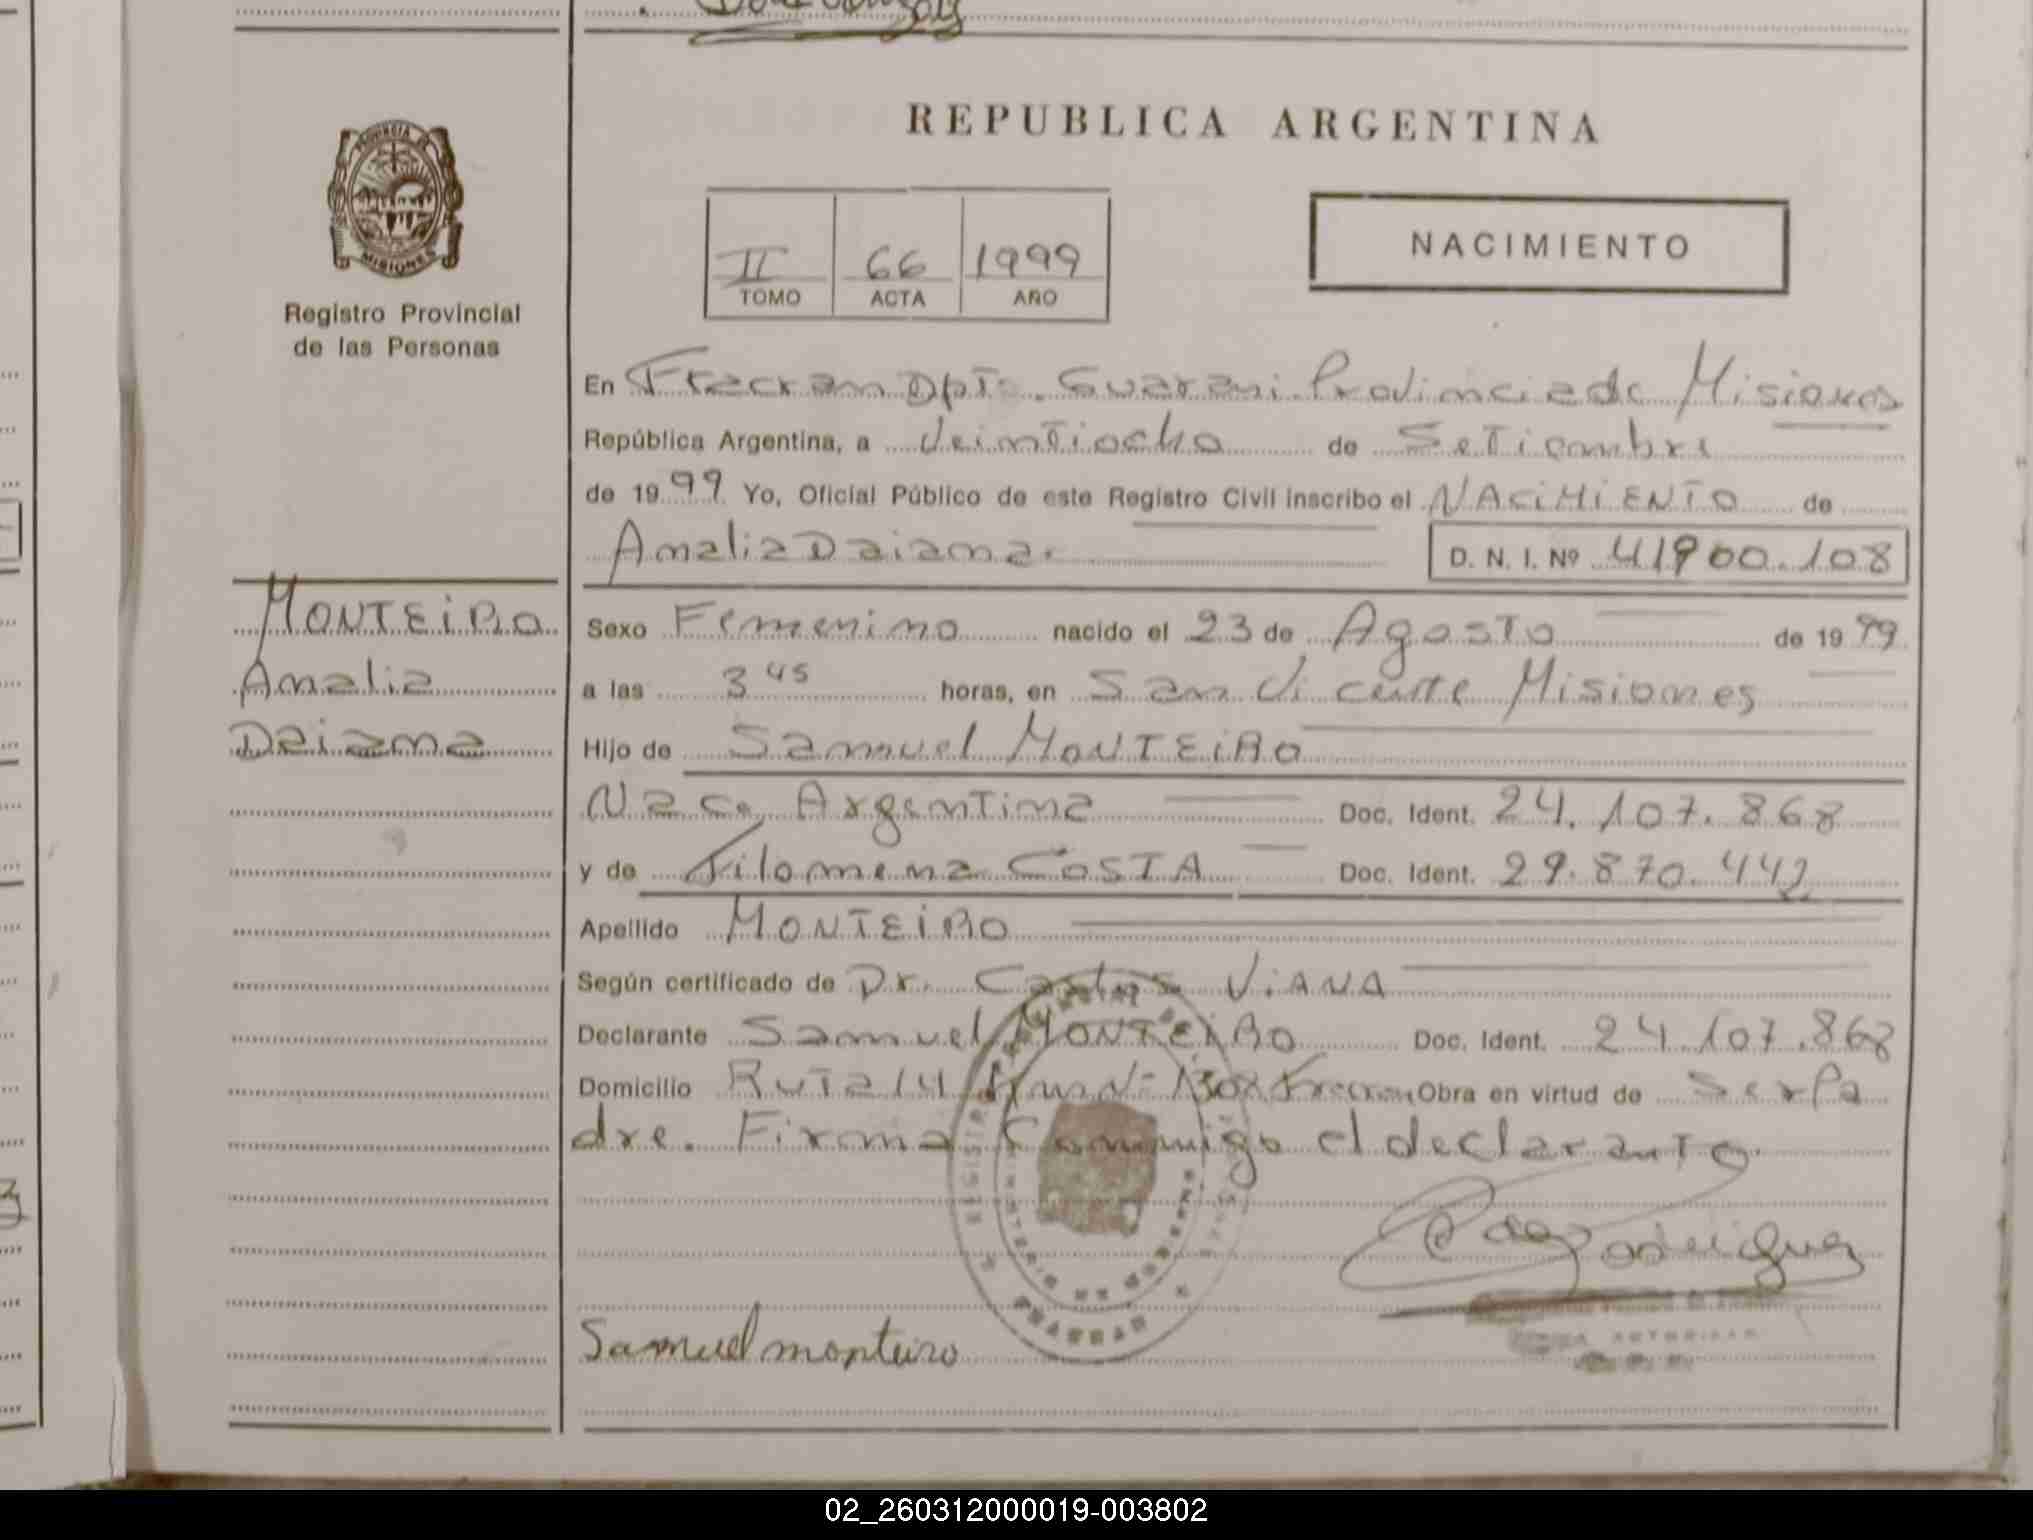 REPUBLICA ARGENTINA
PROVINCIA DE
MISIONES
Registro Provincial
de las Personas
II 66 1999
TOMO ACTA AÑO
NACIMIENTO
En Fracran Dpto. Guarani Provincia de Misiones
República Argentina, a Veintiocho de Setiembre
de 1999 Yo, Oficial Público de este Registro Civil inscribo el NACIMIENTO de
Amalia Daiana. D. N. I. Nº 41900.108
MONTEIRO
Amalia
Daiana
Sexo Femenino nacido el 23 de Agosto de 1999
a las 3 45 horas, en San Vicente Misiones
Hijo de Samuel MONTEIRO
Nac. Argentina Doc. Ident. 24.107.868
y de Filomena COSTA Doc. Ident. 29.870.442
Apellido MONTEIRO
Según certificado de Dr. Carlos ViANA
Declarante Samuel MONTEIRO Doc. Ident. 24.107.868
Domicilio Ruta 14 Km Nº 1308 Fracran Obra en virtud de Ser Pa
dre. Firma Conmigo el declarante.
Rodriguez
Samuel monteiro
02_260312000019-003802